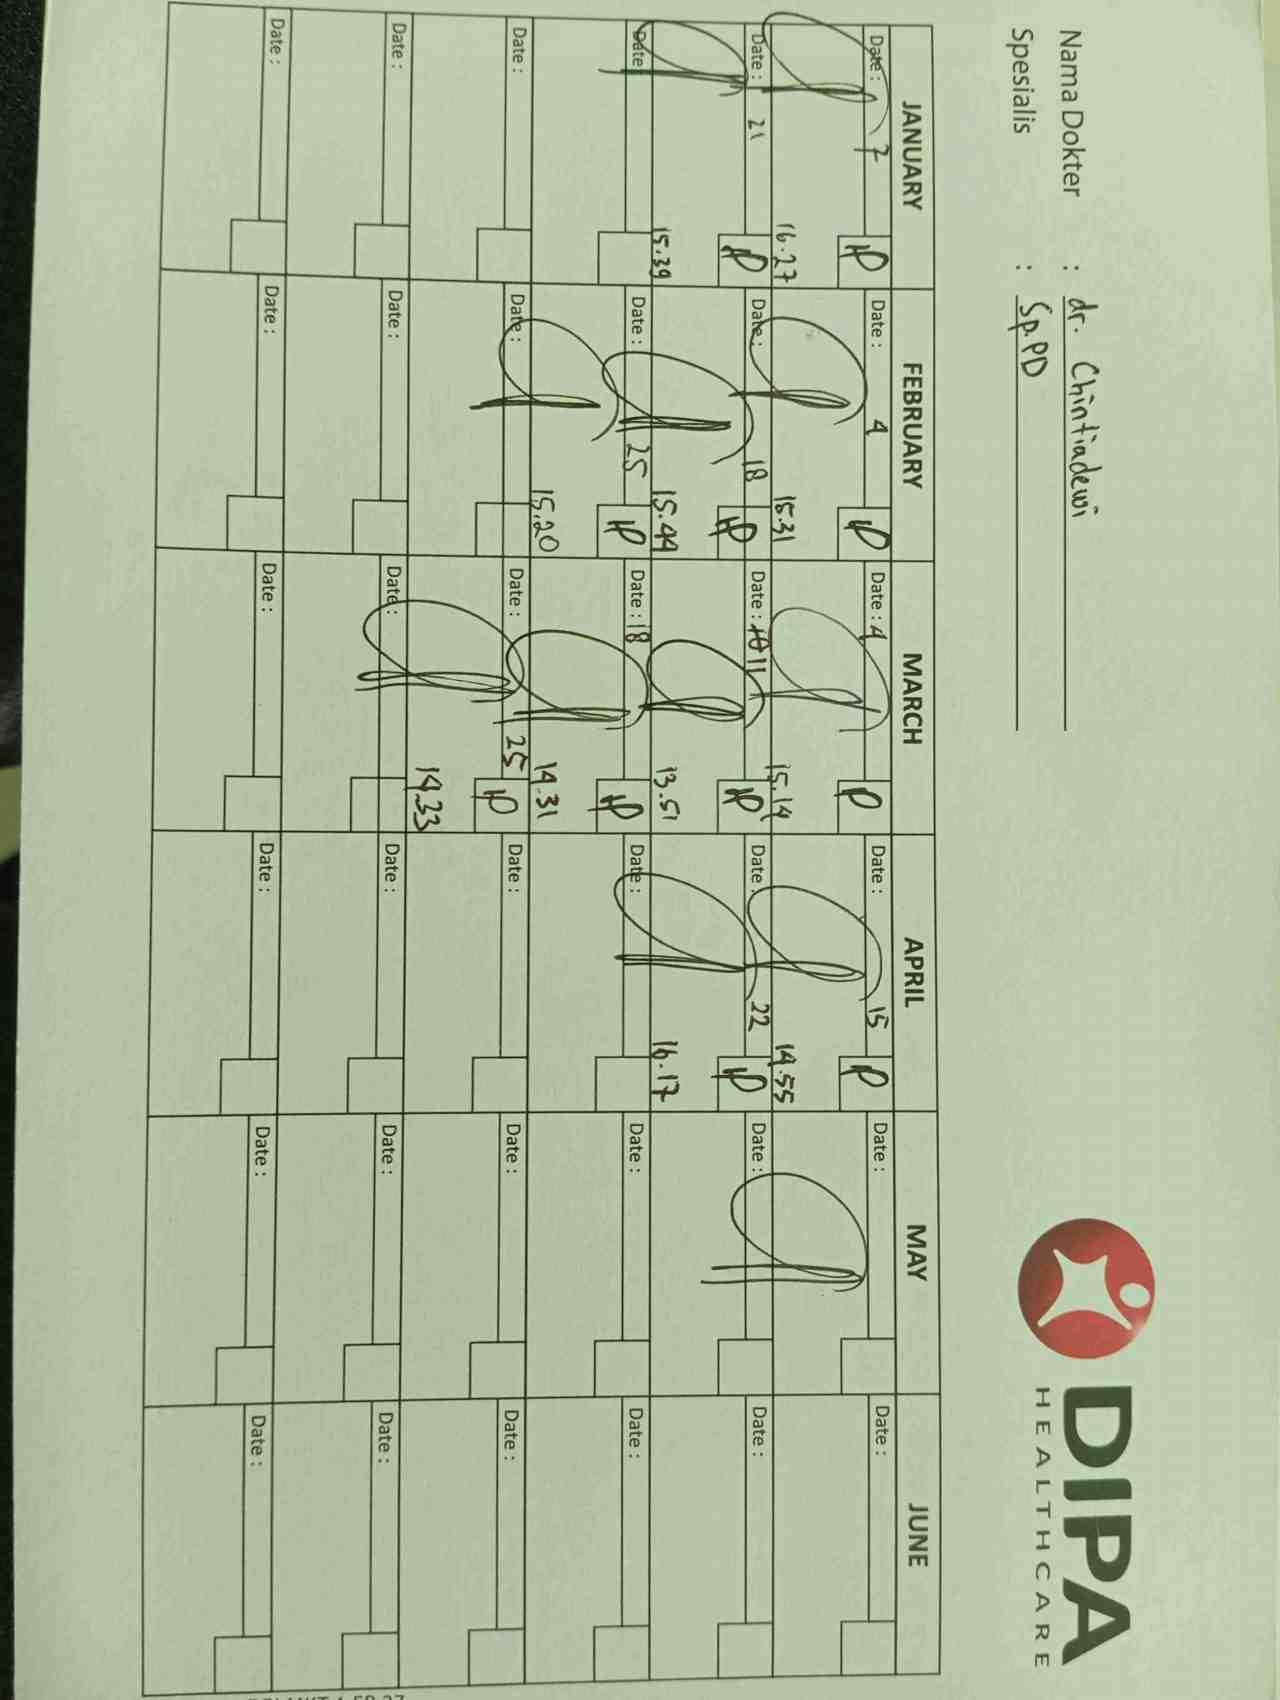 Nama Dokter : dr. Chintiadewi
Spesialis : Sp.PD
DIPA
HEALTHCARE
JANUARY FEBRUARY MARCH APRIL MAY JUNE
Date : 7 Date : 4 Date : 4 Date : 15 Date : Date :
16.27 15.31 15.14 14.55
Date : 21 Date : 18 Date : 11 Date : 22 Date : Date :
15.39 15.44 13.51 16.17
Date : Date : 25 Date : 18 Date : Date : Date :
15.20 14.31
Date : Date : Date : 25 Date : Date : Date :
14.33
Date : Date : Date : Date : Date : Date :
Date : Date : Date : Date : Date : Date :